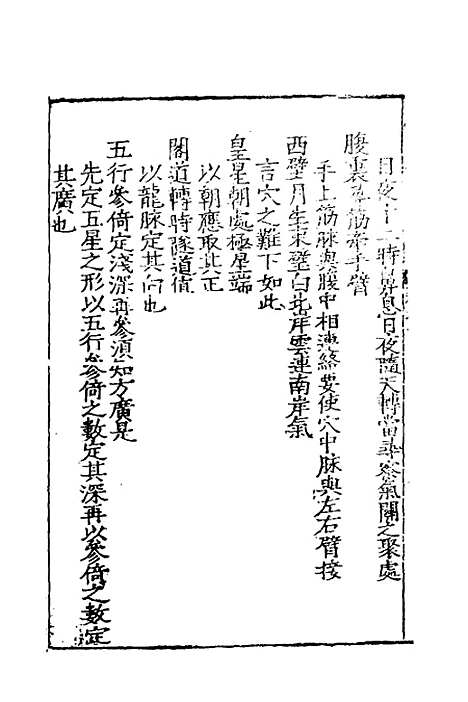 日夜十二時鼻息日夜隨天轉當尋客氣關之聚處
腹裏筋牽手臂
手上筋脉與腹中相連絡要使穴中脉與左右臂接
西壁月生東壁白北岸雲連南岸氣
言穴之難下如此
皇星朝處極星端
以朝應取其正
閣道轉時隊道值
以龍脉定其向也
五行參倚定淺深再參須知方廣是
先定五星之形以五行參倚之數定其深再以參倚之數定
其廣也